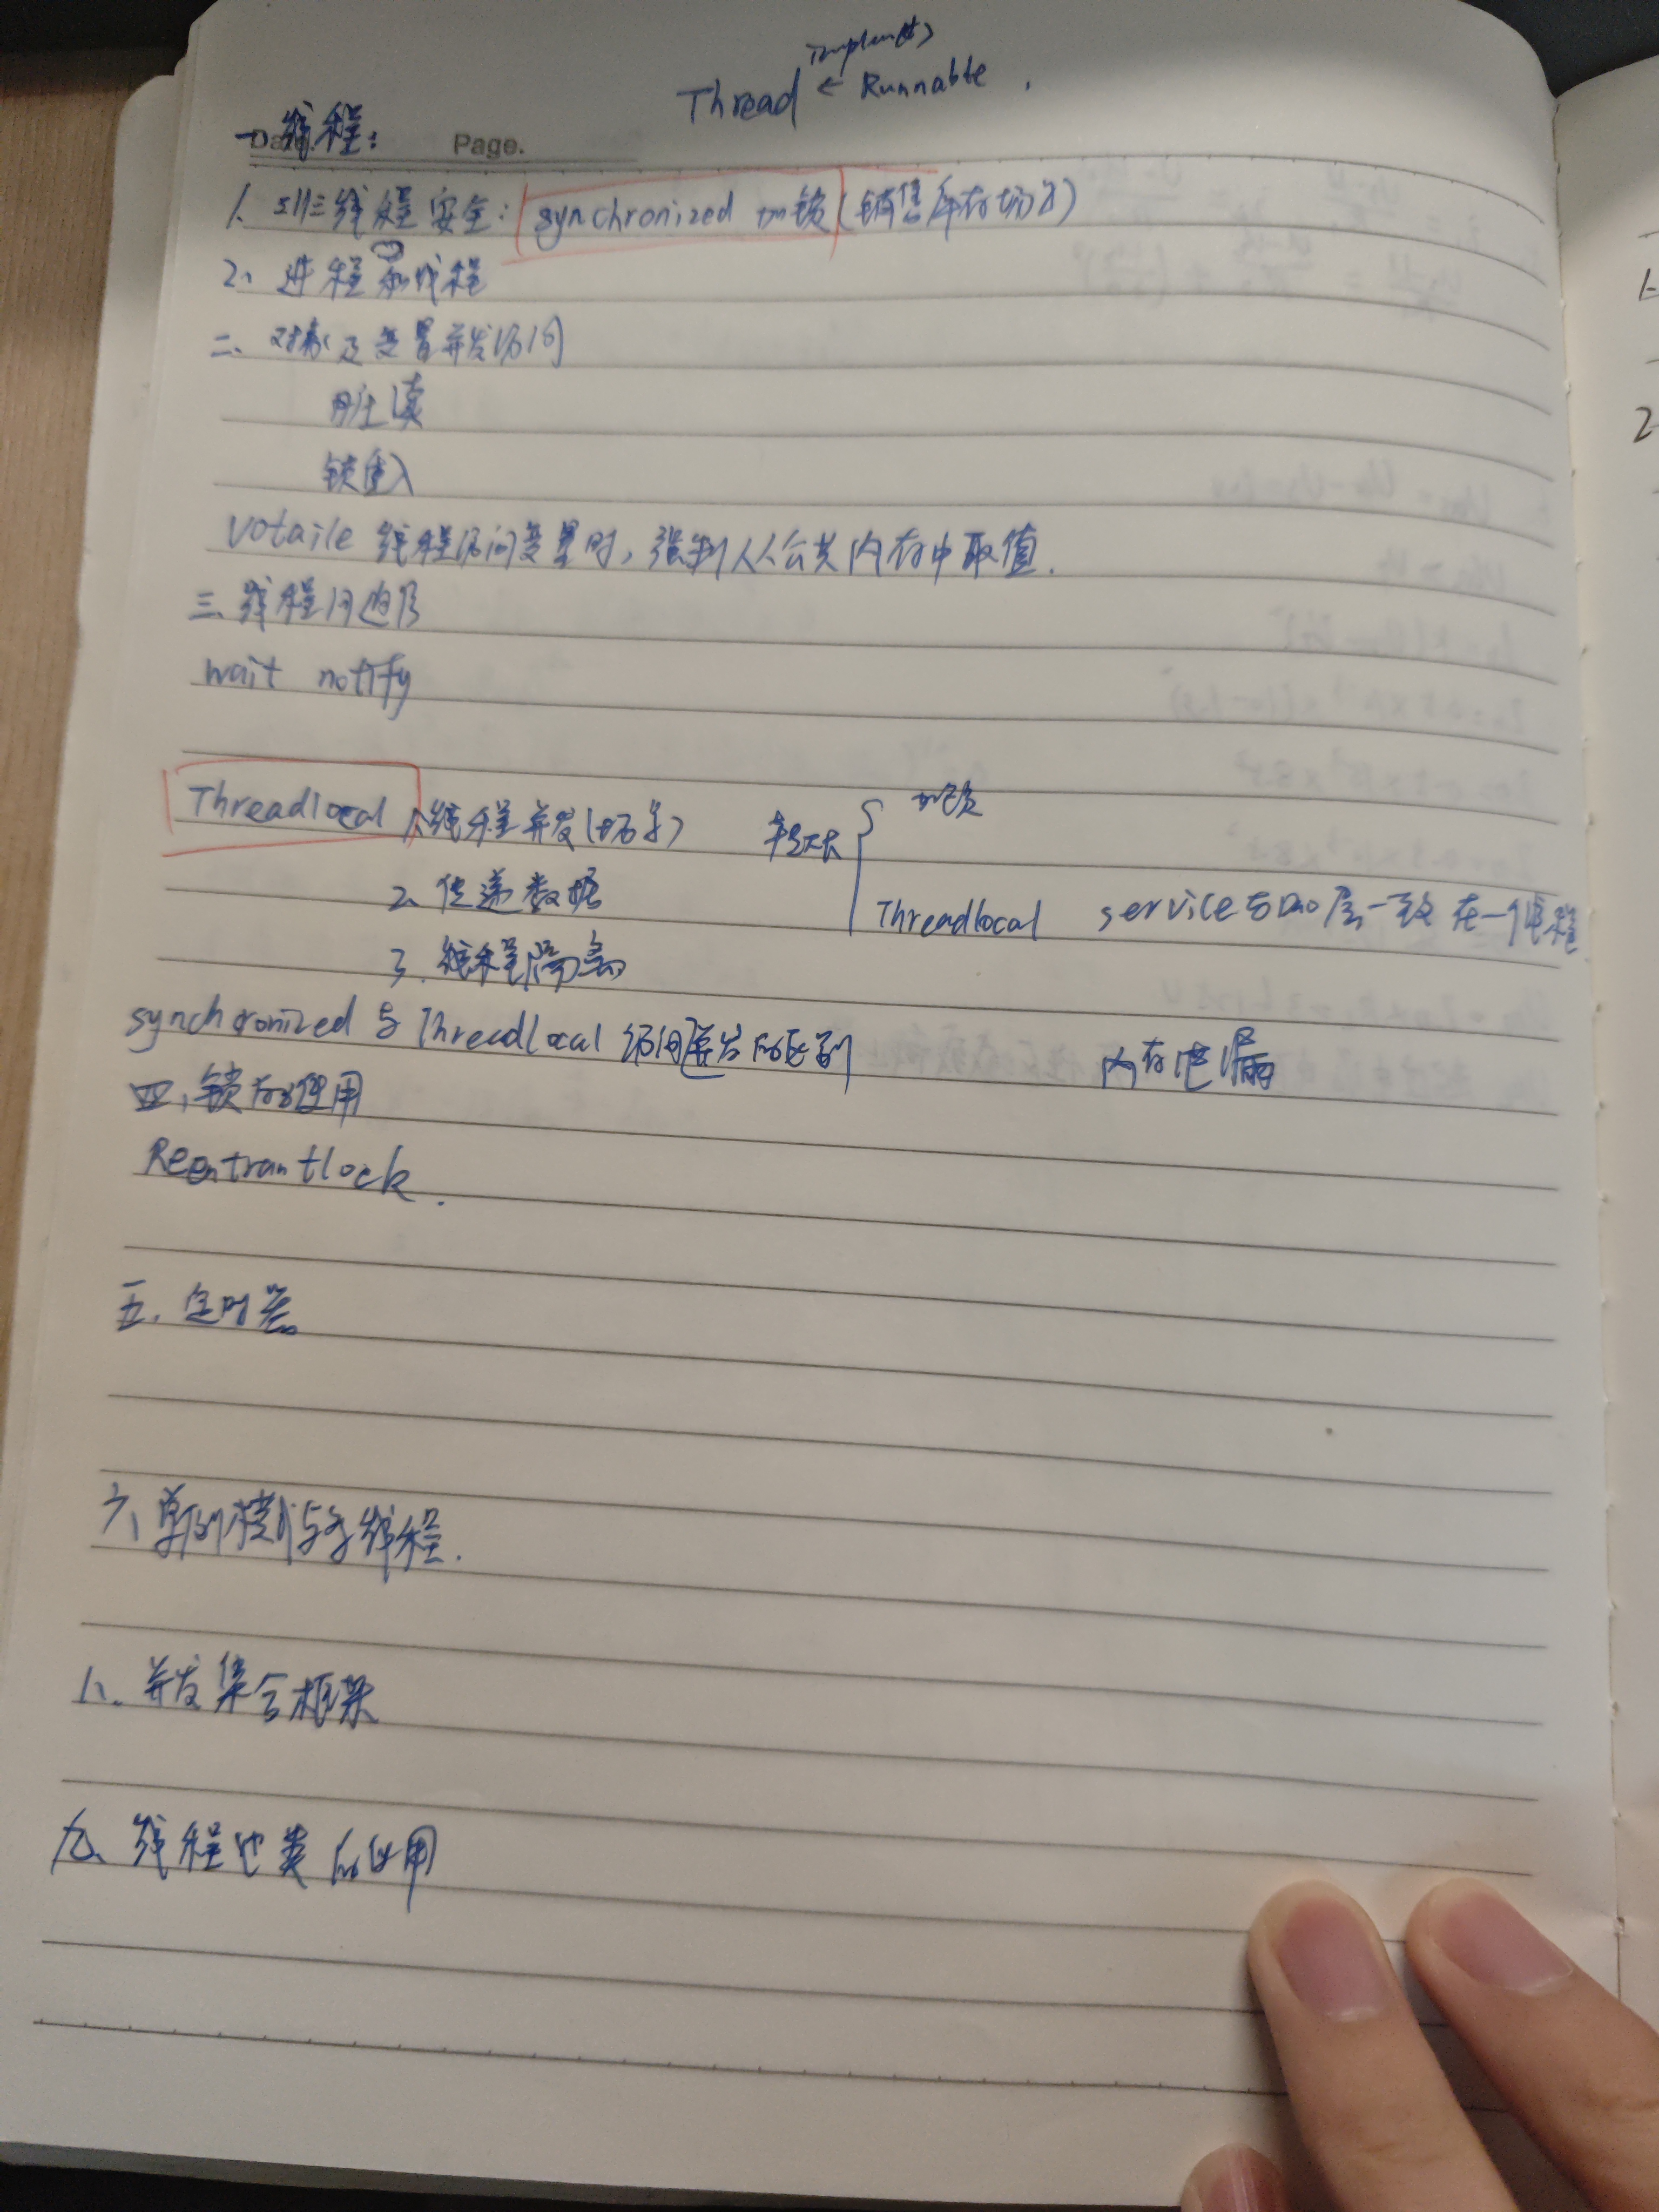 implements
Thread ← Runnable .
一、线程:
Date. Page.
1. 线程安全: synchronized 加锁 (销售库存场景)
2、进程和线程
二、对象及变量并发访问
脏读
锁重入
Votaile 线程访问变量时, 强制从公共内存中取值.
三、线程间通信
wait notify
Threadlocal 1.线程并发(场景) 加锁
2、传递数据
Threadlocal service与Dao层一致 在一个线程
3. 线程隔离
synchronized 与 Threadlocal 访问的区别 内存泄漏
四、锁的使用
Reentrantlock .
五. 定时器
六、单例模式与多线程.
八、并发集合框架
九、线程池类的使用